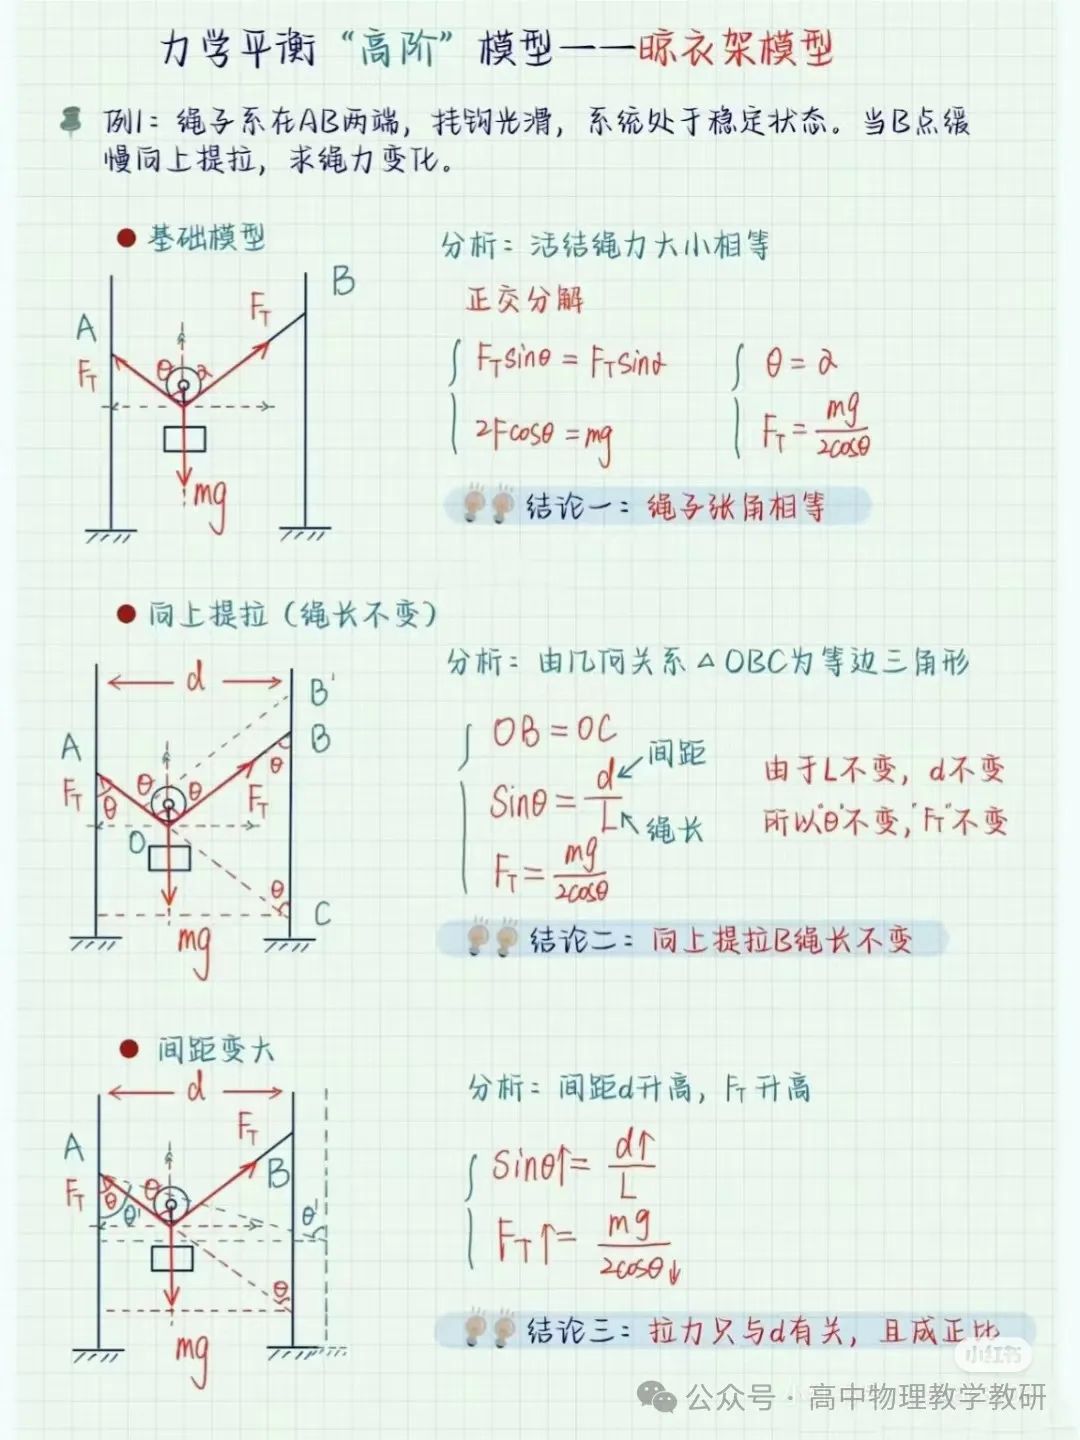 力学平衡“高阶”模型——晾衣架模型
例1：绳子系在AB两端，挂钩光滑，系统处于稳定状态。当B点缓
慢向上提拉，求绳力变化。
基础模型
A
B
F_T
F_T
θ
α
mg
分析：活结绳力大小相等
正交分解
F_T sinθ = F_T sinα
2Fcosθ = mg
θ = α
F_T = mg/2cosθ
结论一：绳子张角相等
向上提拉（绳长不变）
d
B'
A
B
θ
F_T
θ
θ
θ
F_T
O
θ
C
mg
分析：由几何关系△OBC为等边三角形
OB = OC
Sinθ = d/L
间距
绳长
F_T = mg/2cosθ
由于L不变，d不变
所以“θ”不变，“F_T”不变
结论二：向上提拉B绳长不变
间距变大
d
A
F_T
B
F_T
θ
θ
θ'
θ'
θ
mg
分析：间距d升高，F_T升高
Sinθ↑= d↑/L
F_T↑= mg/2cosθ↓
结论三：拉力只与d有关，且成正比
小红书
公众号·高中物理教学教研